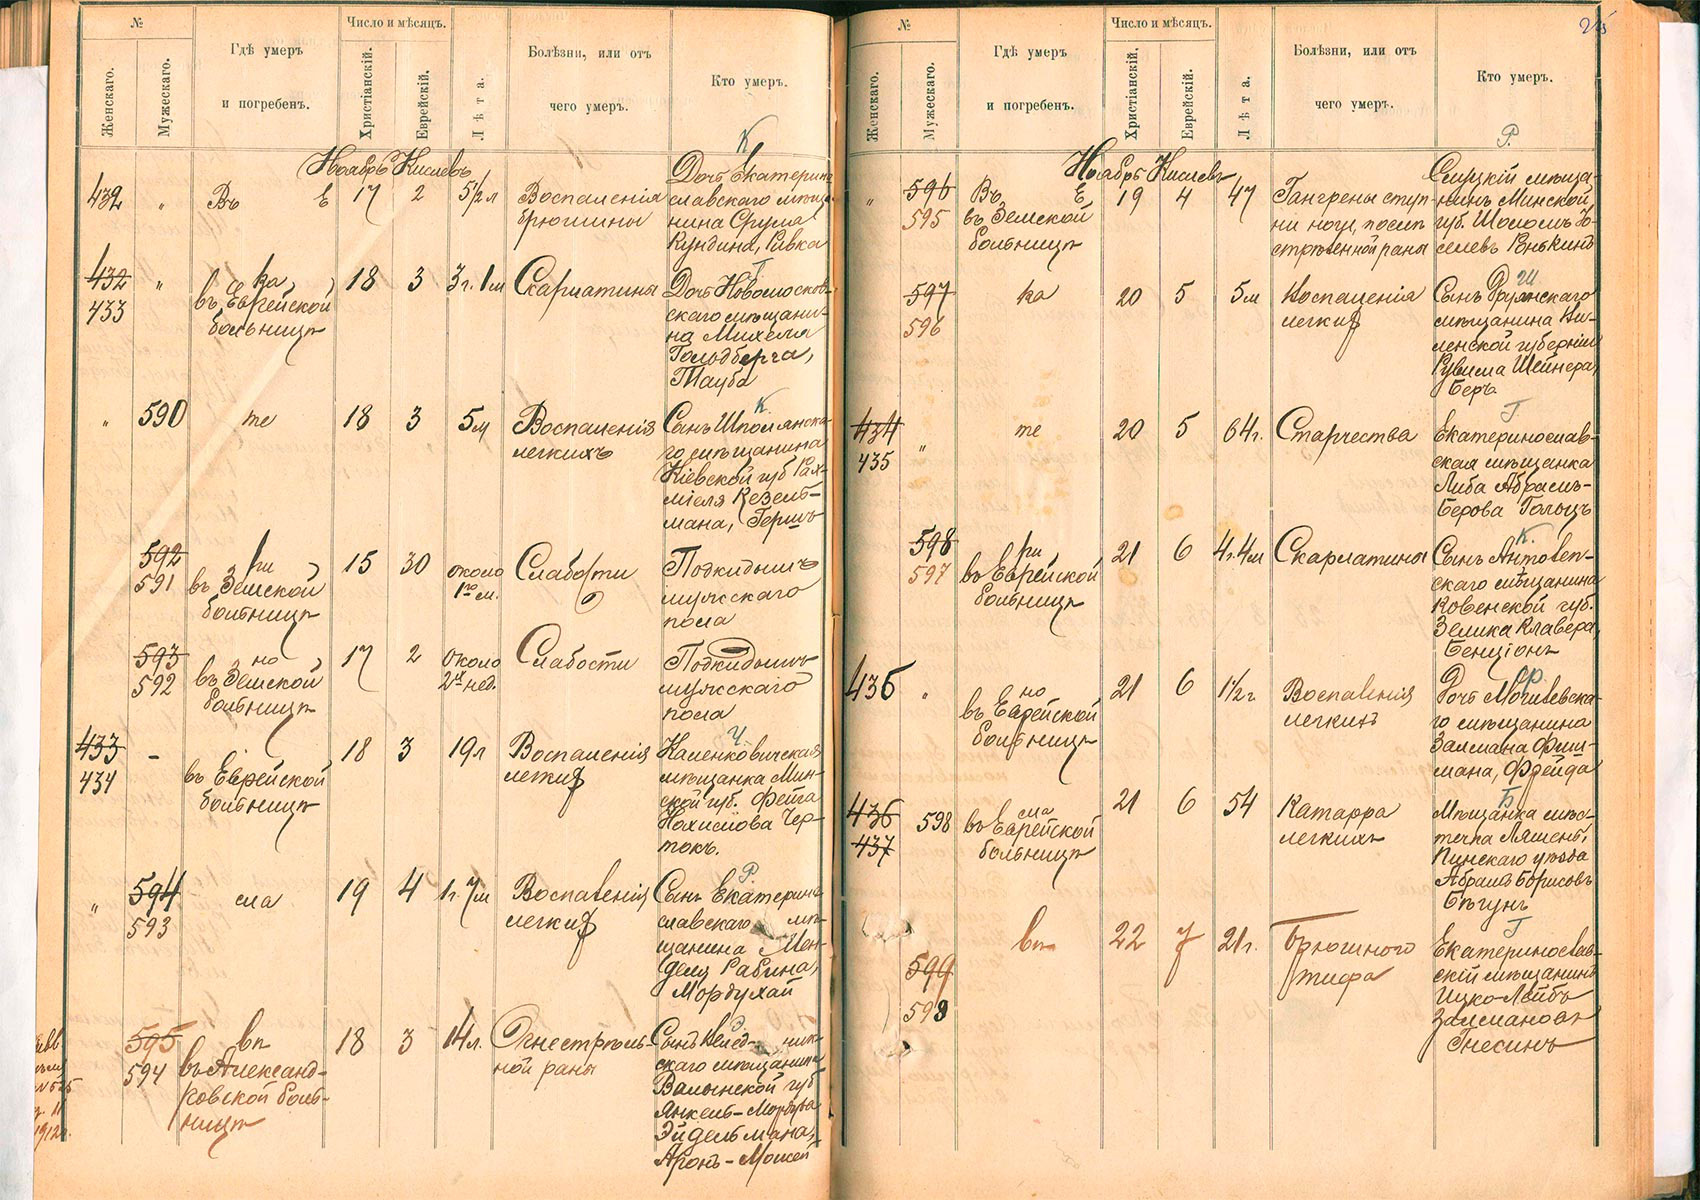 №
Женскаго.
Мужескаго.
Гдѣ умеръ
и погребенъ.
Число и мѣсяцъ.
Христіанскій.
Еврейскій.
Лѣта.
Болѣзни, или отъ
чего умеръ.
Кто умеръ.
К
Ноябрь Кислевъ
432 " Въ Е 17 2 5 1/2 л Воспаленія
брюшины
Дочь Екатерино-
славскаго мѣща-
нина Срула
Кундина, Ривка
432
433
"
ка
въ Еврейской
больницѣ
18 3 3 г. 1 м Скарлатины
Г
Дочь Новомосков-
скаго мѣщани-
на Михеля
Гольдберга,
Тауба
" 590 те 18 3 5 м Воспаленія
легкихъ
К.
Сынъ Шполянска-
го мѣщанина
Кіевской губ Рах-
міеля Кезель-
мана, Гершъ
592
591
ри
въ Земской
больницѣ
15 30 около
1го м.
Слабости
Подкидышъ
мужскаго
пола
593
592
но
въ Земской
больницѣ
17 2 около
2хъ нед.
Слабости
Подкидышъ
мужскаго
пола
433
434
-
въ Еврейской
больницѣ
18 3 19 л Воспаленія
легкихъ
Ч.
мѣщанка Мин-
ской губ. Фейга
Нохимова Чер-
токъ.
" 594
593
сла 19 4 1 г. 7 м Воспаленія
легкихъ
Р.
Сынъ Екатерино-
славскаго мѣ-
щанина Мен-
деля Рабина,
Мордухай
595
594
вп
въ Александ-
ровской боль-
ницѣ
18 3 14 л. Огнестрѣль-
ной раны
скаго мѣщанина
Волынской губ
Янкель-Мордуха
Эйдельмана,
Аронъ-Мошей
25
№
Женскаго.
Мужескаго.
Гдѣ умеръ
и погребенъ.
Число и мѣсяцъ.
Христіанскій.
Еврейскій.
Лѣта.
Болѣзни, или отъ
чего умеръ.
Кто умеръ.
Р.
Ноябрь Кислевъ
" 596
595
Въ Е
въ Земской
больницѣ
19 4 47 Гангрены ступ-
ни ноги, послѣ
стрѣленной раны
Слуцкій мѣща-
нинъ Минской
губ. Шоломъ Ё-
селевъ Ронькинъ
597
596
ка 20 5 5 м Воспаленія
легкихъ
Ш
Сынъ Друянскаго
мѣщанина Ви-
ленской губерніи
Рувима Шейнера,
Беръ.
434
435
"
те 20 5 64 г. Старчества
Г
Екатеринослав-
ская мѣщанка
Либа Абрамъ-
Берова Гольцъ
598
597
ри
въ Еврейской
больницѣ
21 6 4 г. 4 м Скарлатины
К.
Сынъ Антовлеп-
скаго мѣщанина
Ковенской губ.
Зелика Клавера,
Бенціонъ
436 "
но
въ Еврейской
больницѣ
21 6 1 1/2 г Воспаленія
легкихъ
Ф.
Дочь Могилевска-
го мѣщанина
Залмана Фиш-
мана, Фрейда
436
437
598
сла
въ Еврейской
больницѣ
21 6 54 Катарра
легкихъ
Б
Мѣщанка мѣс-
течка
Пинскаго уѣзда
Абрамъ Борисовъ
Бѣгунъ
599
598
вп 22 7 21 г. Брюшного
тифа
Г
Екатеринослав-
скій мѣщанинъ
Ицко-Лейбъ
Залмановъ
Гнесинъ